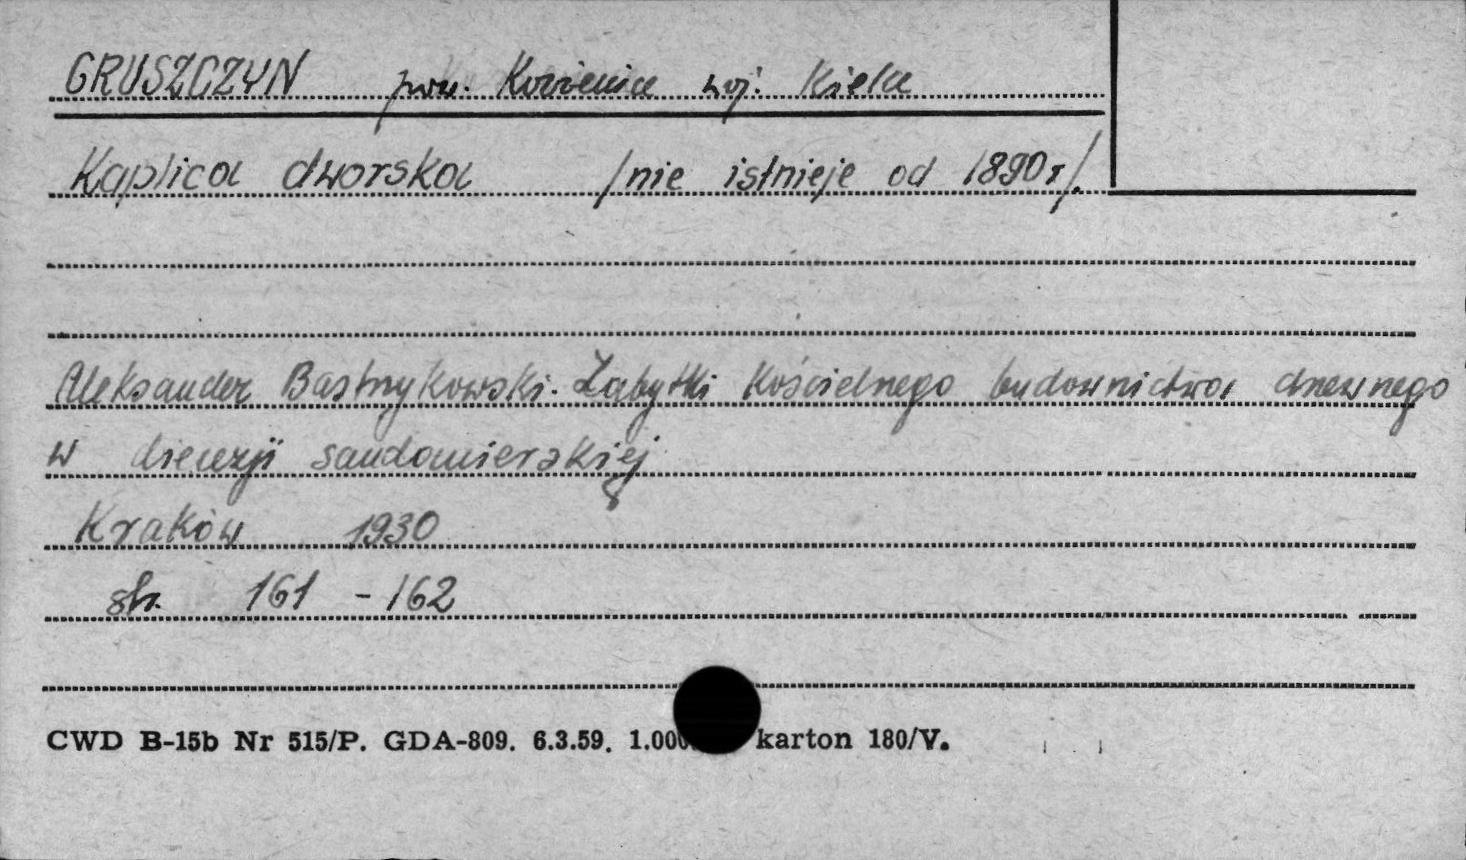 GRUSZCZYN pow. Kozienice woj. Kielce
Kaplica dworska /nie istnieje od 1890r/.
Aleksander Bastrzykowski. Zabytki kościelnego budownictwa drzewnego
w diecezji sandomierskiej
Kraków 1930
str. 161 - 162
CWD B-15b Nr 515/P. GDA-809. 6.3.59. karton 180/V.